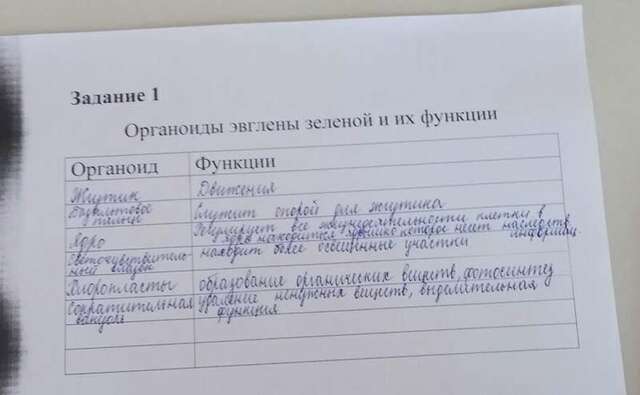 Задание 1
Органоиды эвглены зеленой и их функции
Органоид Функции
Жгутик Движения
Базальтовое тельце Служит опорой для жгутика
Ядро Регулирует все жизнедеятельности клетки в
ядре находится которое несет наследств.
информац.
Светочувствитель-
ный глазок находит более освещенные участки
Хлоропласты образование органических веществ, фотосинтез
Сократительная удаление ненужных веществ, выделительная
вакуоль функция